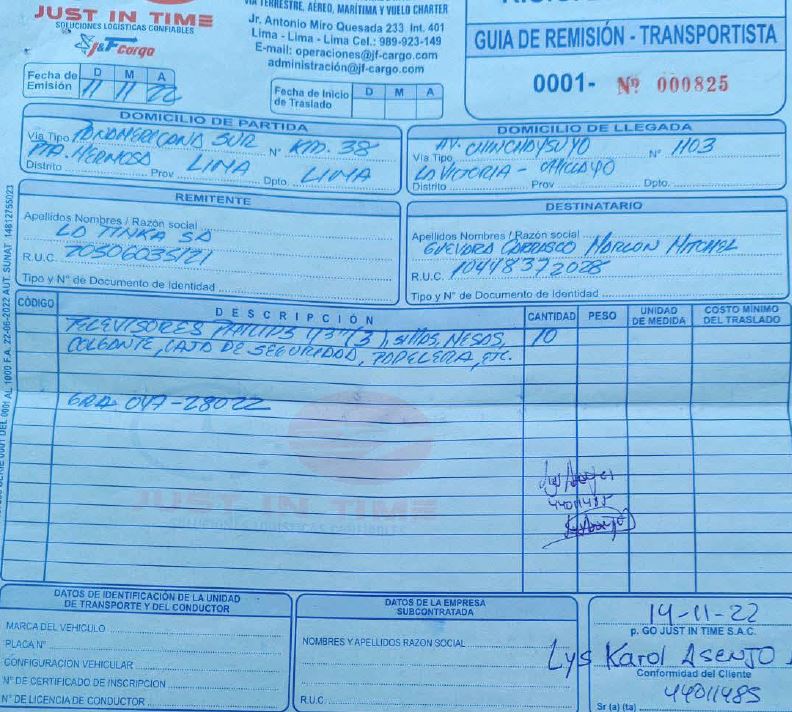 JUST IN TIME
SOLUCIONES LOGISTICAS CONFIABLES
J&F Cargo
VIA TERRESTRE, AÉREO, MARÍTIMA Y VUELO CHARTER
Jr. Antonio Miro Quesada 233 Int. 401
Lima - Lima - Lima Cel.: 989-923-149
E-mail: operaciones@jf-cargo.com
administración@jf-cargo.com
GUIA DE REMISIÓN - TRANSPORTISTA
0001- Nº 000825
Fecha de Emisión D M A
11 11 22
Fecha de Inicio de Traslado D M A
DOMICILIO DE PARTIDA
Via Tipo PANAMERICANA SUR Nº KM. 38
PTA. HERMOSA LIMA LIMA
Distrito Prov Dpto.
DOMICILIO DE LLEGADA
Via Tipo AV. CHINCHAYSUYO Nº 1103
LA VICTORIA - CHICLAYO
Distrito Prov Dpto.
REMITENTE
Apellidos Nombres / Razón social
LA TINKA SA
R.U.C. 20506035121
Tipo y N° de Documento de Identidad
DESTINATARIO
Apellidos Nombres / Razón social
GUEVARA CARRASCO MARLON MITCHEL
R.U.C. 10448372028
Tipo y N° de Documento de Identidad
CÓDIGO DESCRIPCIÓN CANTIDAD PESO UNIDAD DE MEDIDA COSTO MÍNIMO DEL TRASLADO
TELEVISORES PHILIPS 43"(3), SILLAS, MESAS, 10
COLGANTE, CAJA DE SEGURIDAD, PAPELERA, ETC.
047-28022
44011485
JUST IN TIME
SOLUCIONES LOGISTICAS CONFIABLES
DEL 0001 AL 1000 F.A. 22-06-2022 AUT. SUNAT 14812755023
DATOS DE IDENTIFICACIÓN DE LA UNIDAD DE TRANSPORTE Y DEL CONDUCTOR
MARCA DEL VEHICULO
PLACA N°
CONFIGURACIÓN VEHICULAR
N° DE CERTIFICADO DE INSCRIPCION
N° DE LICENCIA DE CONDUCTOR
DATOS DE LA EMPRESA SUBCONTRATADA
NOMBRES Y APELLIDOS RAZON SOCIAL
R.U.C.
14-11-22
p. GO JUST IN TIME S.A.C.
Lys Karol ASENJO
Conformidad del Cliente
44011485
Sr (a) (ta)